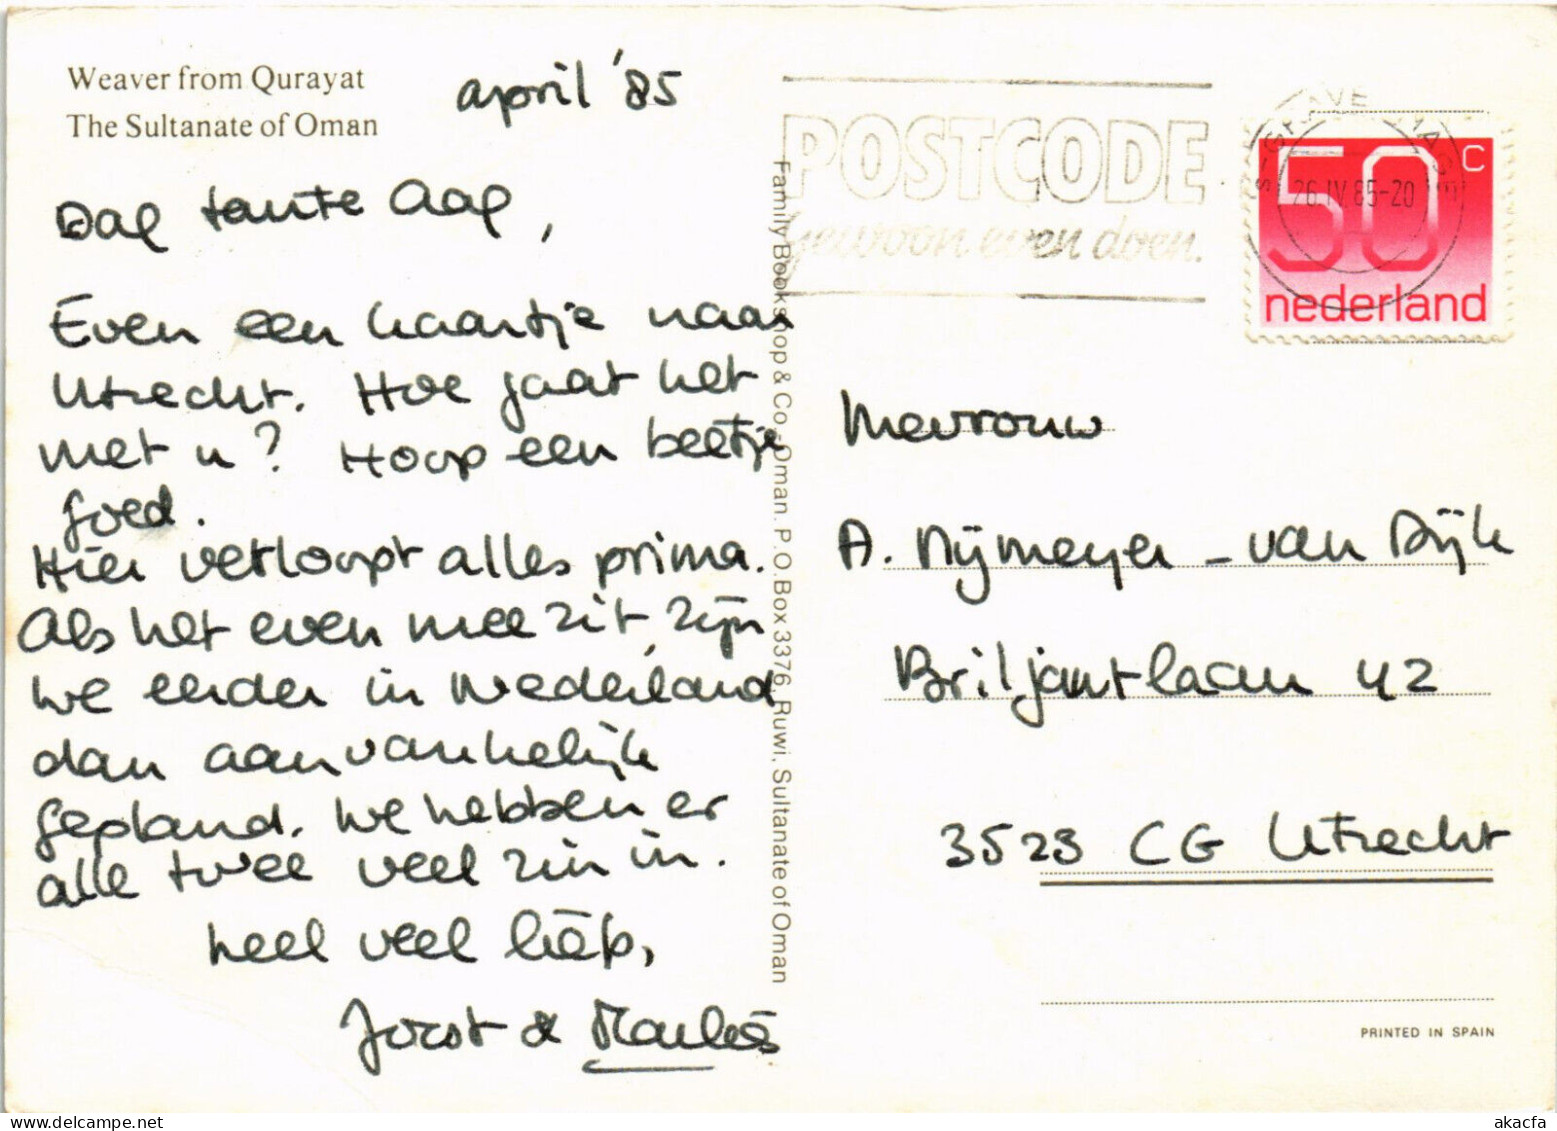 Weaver from Qurayat
The Sultanate of Oman
april '85
Dag tante Aag,
Even een kaartje naar
Utrecht. Hoe gaat het
met u? Hoop een beetje
goed.
Hier verloopt alles prima.
Als het even mee zit, zijn
we eerder in Nederland
dan aanvankelijk
gepland. We hebben er
alle twee veel zin in.
heel veel liefs,
Joost &
Family Bookshop & Co. Oman. P.O. Box 3376, Ruwi, Sultanate of Oman
POSTCODE
gewoon even doen.
26.IV.85-20
50 C
nederland
Mevrouw
A. Nijmeyer - van Dijk
Briljantlaan 42
3523 CG Utrecht
PRINTED IN SPAIN
akacfa